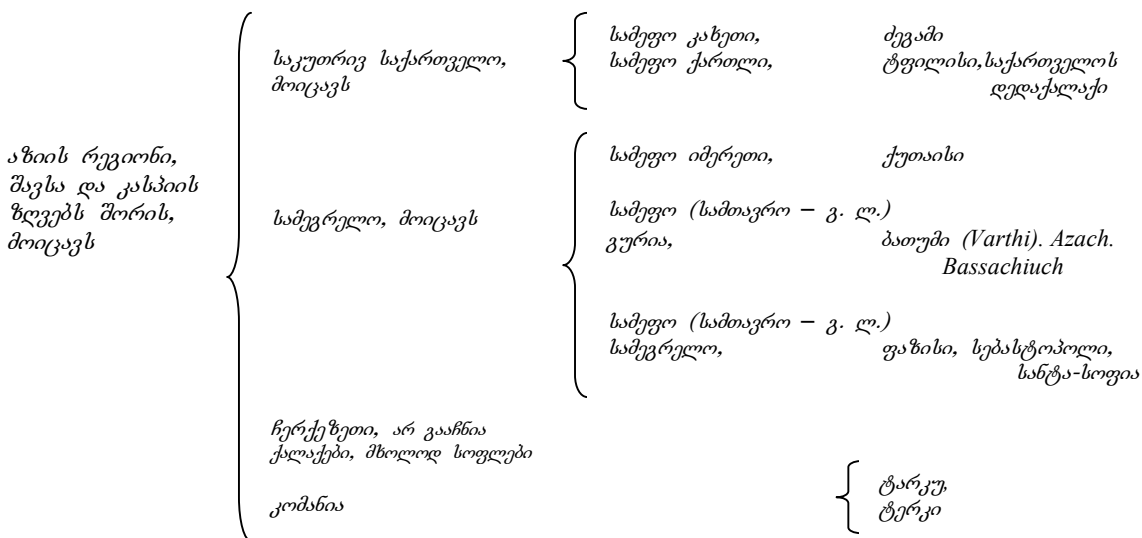 აზიის რეგიონი,
შავსა და კასპიის
ზღვებს შორის,
მოიცავს
საკუთრივ საქართველო,
მოიცავს
სამეფო კახეთი, ძეგამი
სამეფო ქართლი, ტფილისი,საქართველოს
დედაქალაქი
სამეგრელო, მოიცავს
სამეფო იმერეთი, ქუთაისი
სამეფო (სამთავრო – გ. ლ.)
გურია, ბათუმი (Varthi). Azach.
Bassachiuch
სამეფო (სამთავრო – გ. ლ.)
სამეგრელო, ფაზისი, სებასტოპოლი,
სანტა-სოფია
ჩერქეზეთი, არ გააჩნია
ქალაქები, მხოლოდ სოფლები
კომანია
ტარკუ,
ტერკი